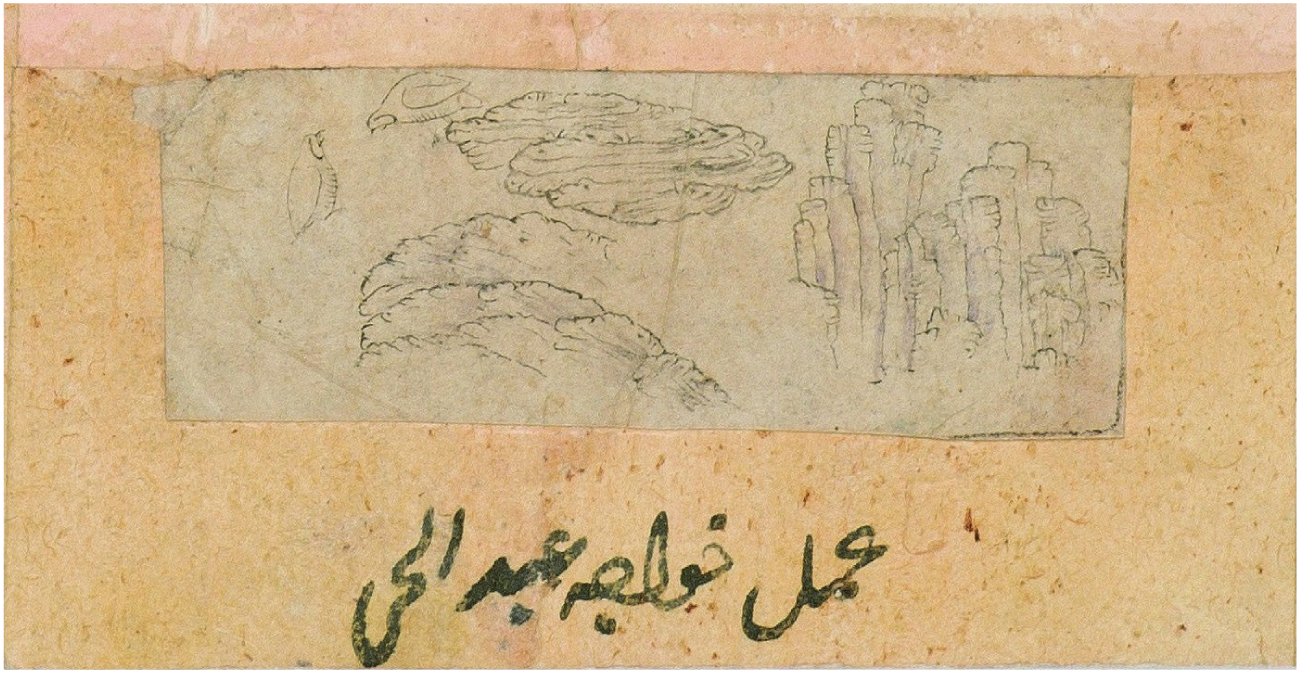 عمل خواجه عبد الحی